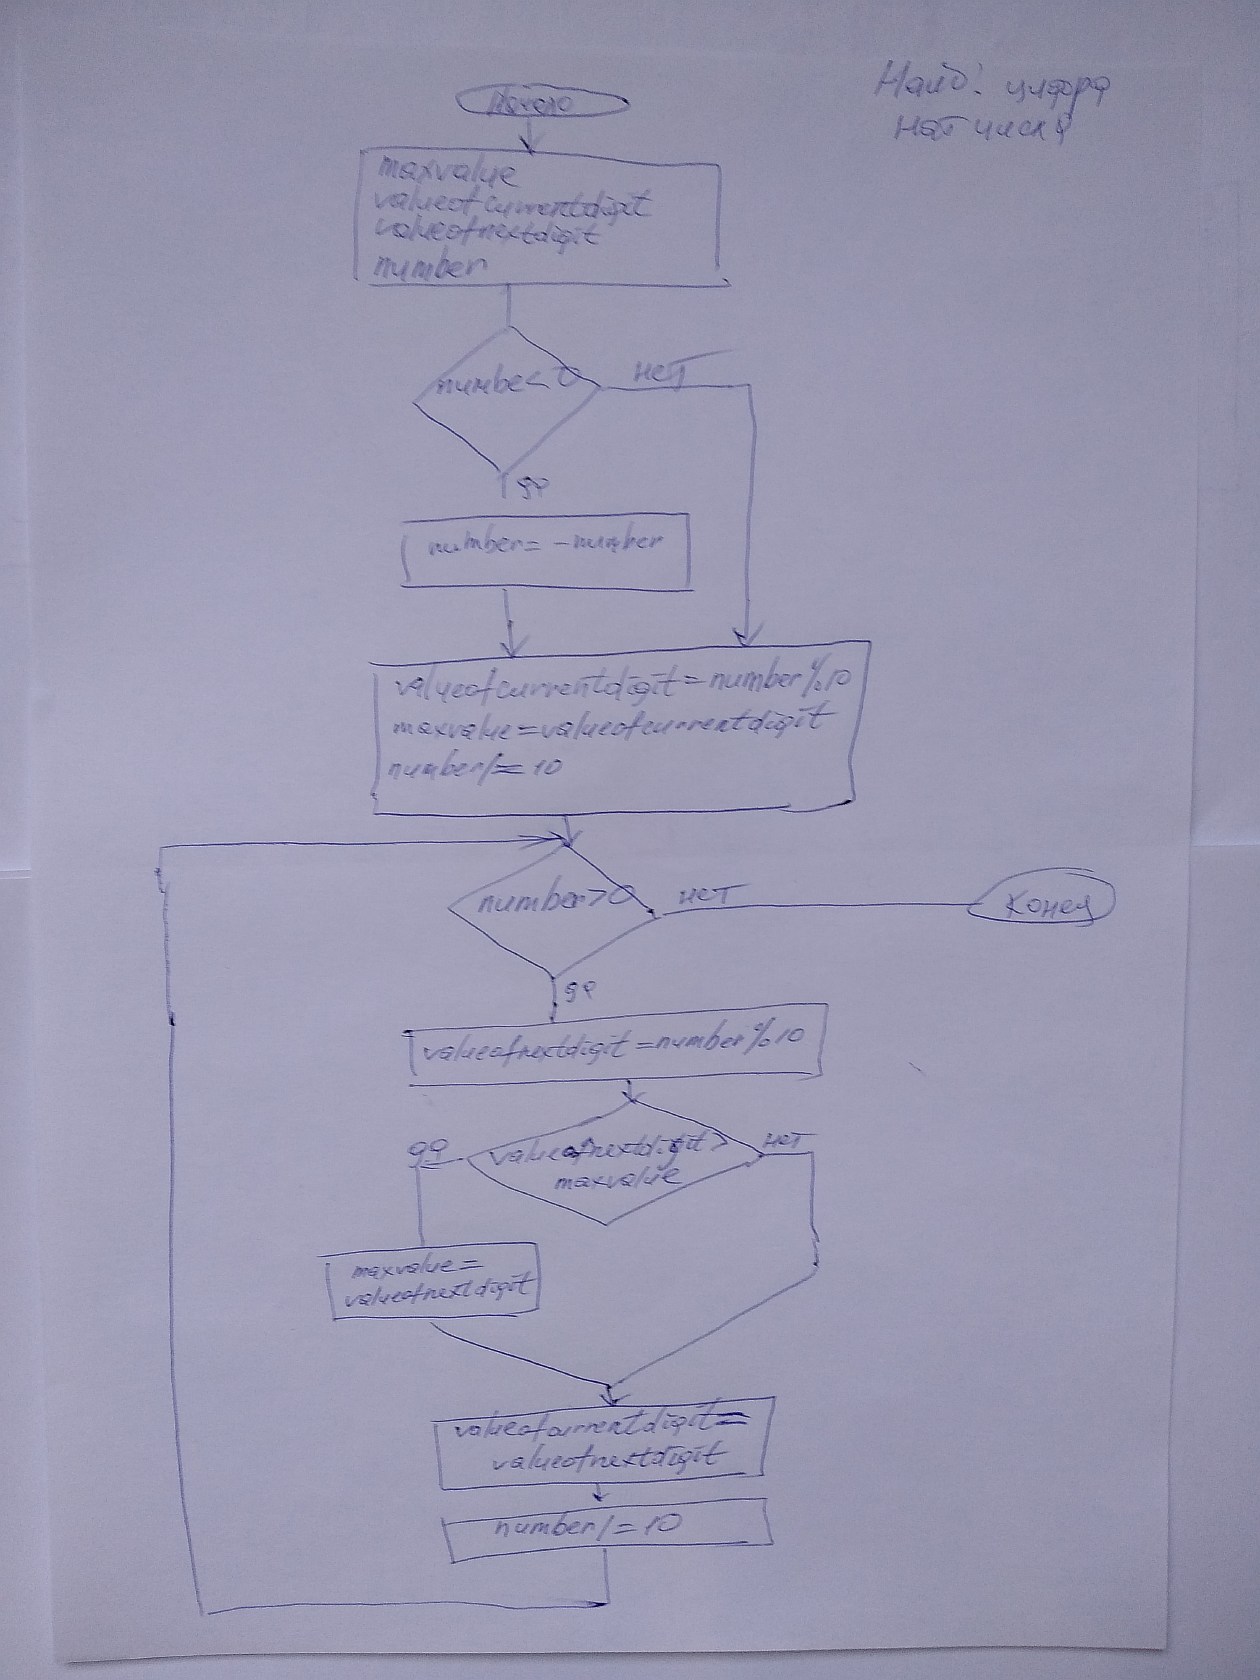 Наиб. цифра
нат числа
Начало
maxvalue
valueofcurrentdigit
valueofnextdigit
number
number<0
нет
да
number= -number
valueofcurrentdigit=number%10
maxvalue=valueofcurrentdigit
number/=10
number>0
нет
Конец
да
valueofnextdigit=number%10
да
valueofnextdigit>
maxvalue
нет
maxvalue=
valueofnextdigit
valueofcurrentdigit=
valueofnextdigit
number/=10